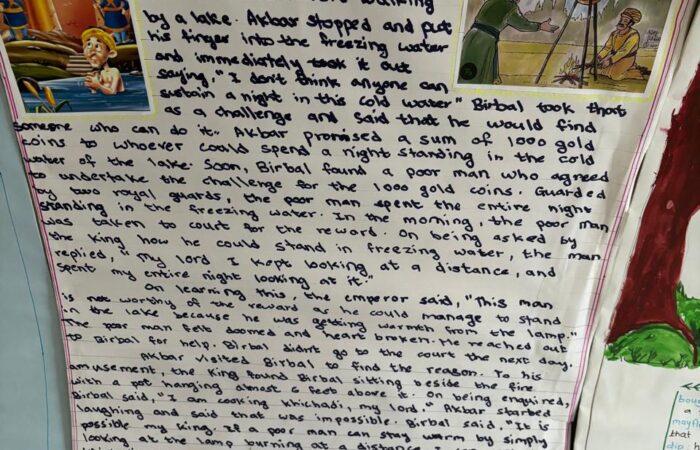 walking
by a lake. Akbar stopped and put
his finger into the freezing water
and immediately took it out
saying, "I don't think anyone can
sustain a night in this cold water" Birbal took that
as a challenge and said that he would find
someone who can do it. Akbar promised a sum of 1000 gold
coins to whoever could spend a night standing in the cold
water of the lake. Soon, Birbal found a poor man who agreed
to undertake the challenge for the 1000 gold coins. Guarded
by two royal guards, the poor man spent the entire night
standing in the freezing water. In the morning, the poor man
was taken to court for the reward. On being asked by
the king how he could stand in freezing water, the man
replied, "My lord I kept looking at a distance, and
spent my entire night looking at it."
On learning this, the emperor said, "This man
is not worthy of the reward as he could manage to stand
in the lake because he was getting warmth from the lamp."
The poor man felt doomed and heart broken. He reached out
to Birbal for help. Birbal didn't go to the court the next day.
Akbar visited Birbal to find the reason. To his
amusement, the king found Birbal sitting beside the fire
with a pot hanging almost 6 feet above it. On being enquired,
Birbal said, "I am cooking khichadi, my lord. Akbar started
laughing and said that was impossible. Birbal said, "It is
possible my king. If a poor man can stay warm by simply
looking at the lamp burning at a distance, I can
boug
a
mayfl
dip h